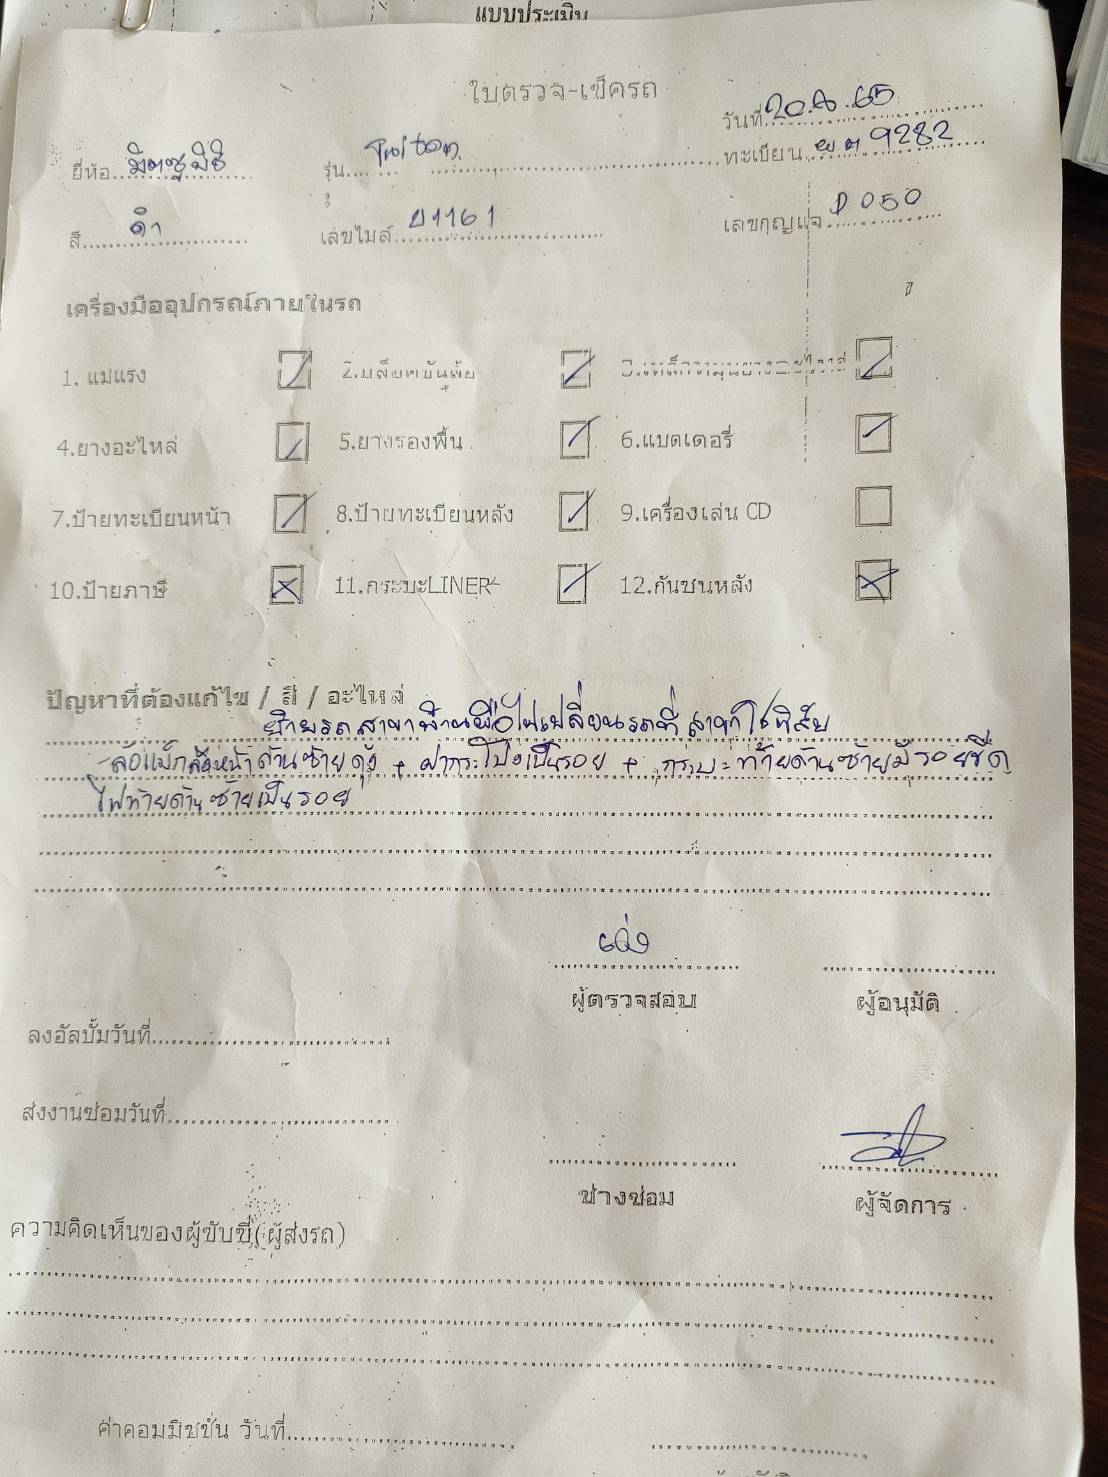 แบบประเมิน
ใบตรวจ-เช็ครถ
วันที่ 20.6.65
ยี่ห้อ มิตซูบิชิ รุ่น Triton ทะเบียน ยต 9282
สี ดำ เลขไมล์ 41161 เลขกุญแจ D050
เครื่องมืออุปกรณ์ภายในรถ
1. แม่แรง 2.บล็อคขันล้อ
4.ยางอะไหล่ 5.ยางรองพื้น 6.แบตเตอรี่
7.ป้ายทะเบียนหน้า 8.ป้ายทะเบียนหลัง 9.เครื่องเล่น CD
10.ป้ายภาษี 11.กระบะLINER 12.กันชนหลัง
ปัญหาที่ต้องแก้ไข / สี / อะไหล่
ย้ายรถสาขาบ้านผือไปเปลี่ยนรถที่สาขาโซ่พิสัย
- ล้อแม็กล้อหน้าด้านซ้ายดุ้ง + ฝากระโปงเป็นรอย + กระบะท้ายด้านซ้ายมีรอยขีด
ไฟท้ายด้านซ้ายเป็นรอย
เด่ง
ผู้ตรวจสอบ ผู้อนุมัติ
ลงอัลบั้มวันที่
ส่งงานซ่อมวันที่
ช่างซ่อม ผู้จัดการ
ความคิดเห็นของผู้ขับขี่(ผู้ส่งรถ)
ค่าคอมมิชชั่น วันที่